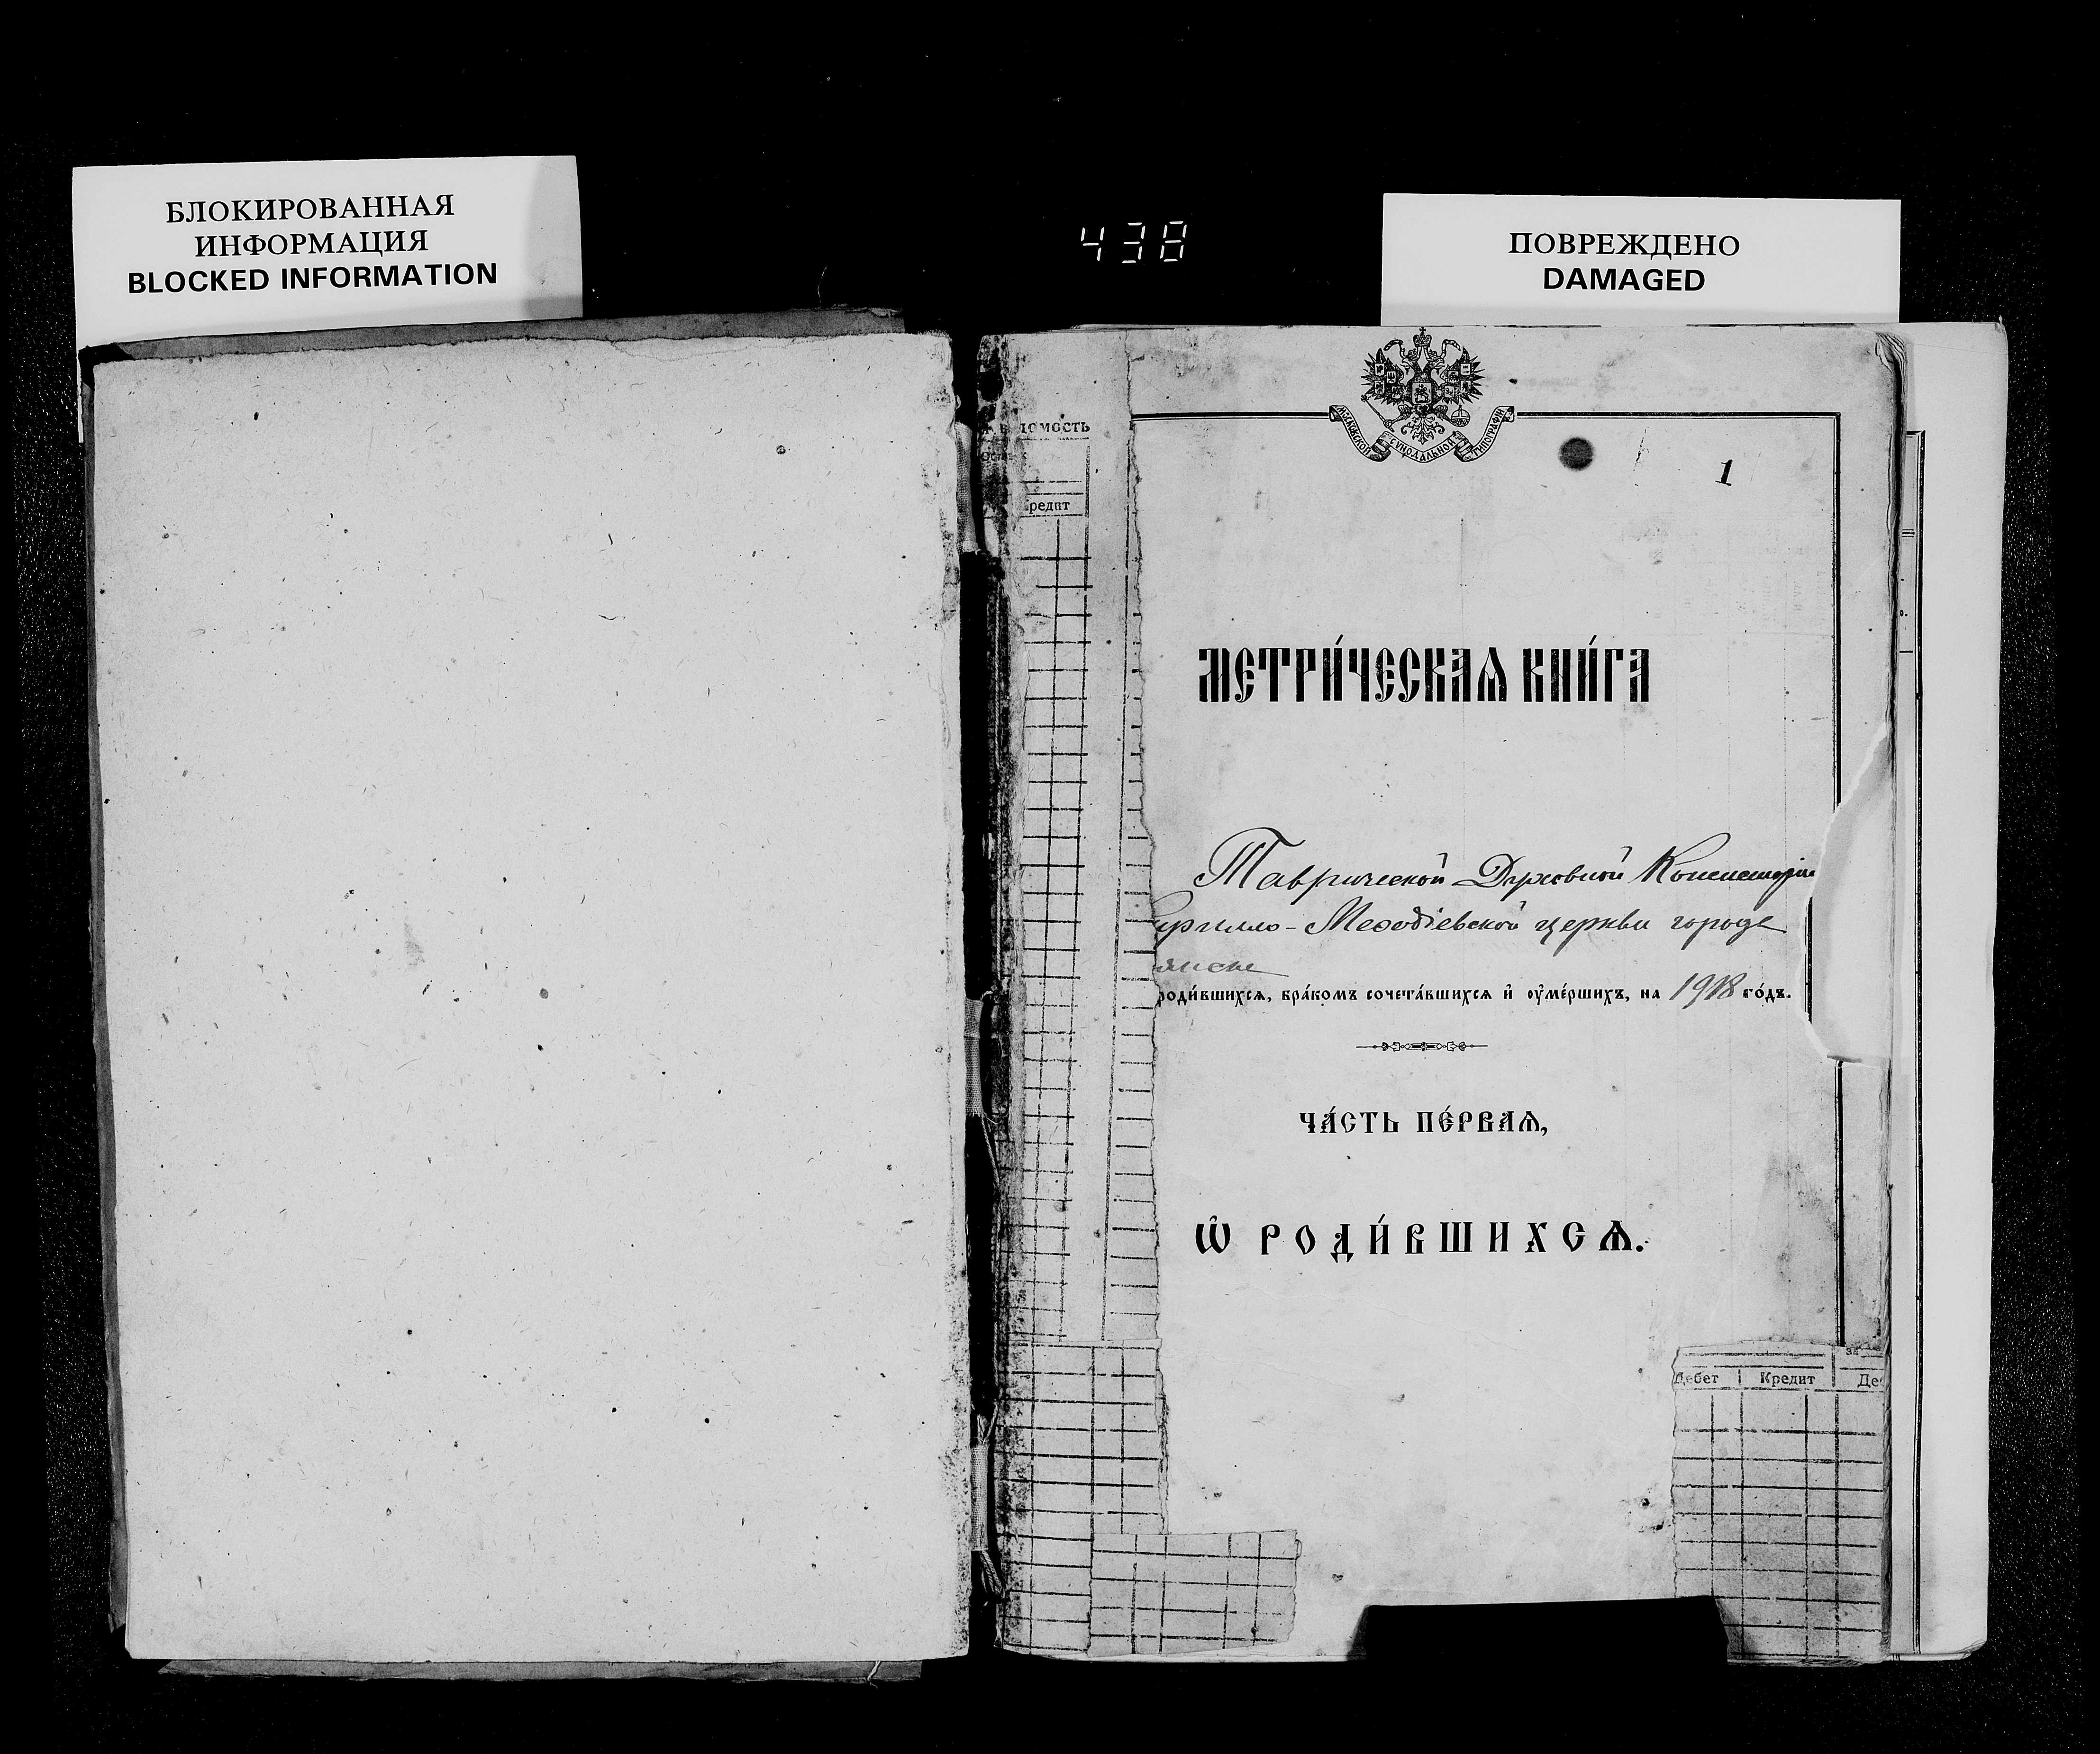 БЛОКИРОВАННАЯ
ИНФОРМАЦИЯ
BLOCKED INFORMATION
438
ПОВРЕЖДЕНО
DAMAGED
МОСКОВСКОЙ СѴНОДАЛЬНОЙ ТИПОГРАФІИ
1
домость
редит
МЕТРИ́ЧЕСКАѦ КНИ́ГА
Таврической Духовной Консисторіи
Кирилло-Меѳодіевской церкви города
янска
роди́вшихсѧ, бра́комъ сочета́вшихсѧ и҆ оу҆ме́ршихъ, на 1918 го́дъ.
ЧА́СТЬ ПЕ́РВАѦ,
Ѡ҆ РОДИ́ВШИХСѦ.
Дебет Кредит Де